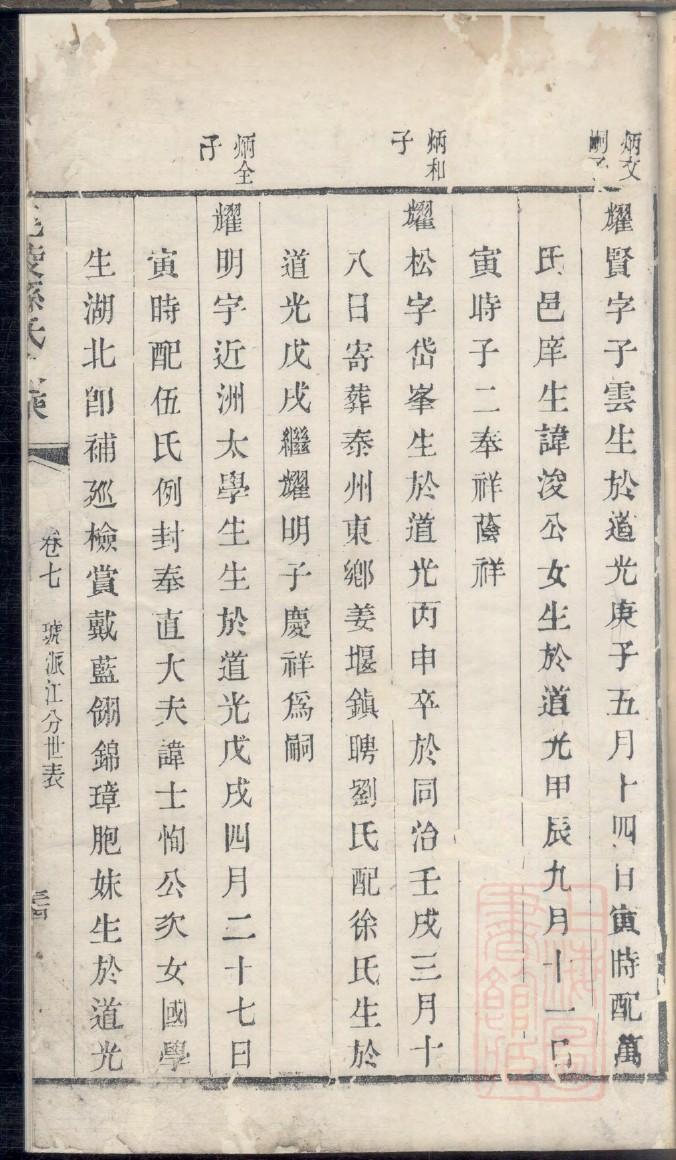 炳文
嗣子
耀賢字子雲生於道光庚子五月十四日寅時配萬
氏邑庠生諱浚公女生於道光甲辰九月十一日
寅時子二奉祥蔭祥
炳和
子
耀松字岱峯生於道光丙申卒於同治壬戌三月十
八日寄葬泰州東鄉姜堰鎮聘劉氏配徐氏生於
道光戊戌繼耀明子慶祥爲嗣
炳全
子
耀明字近洲太學生生於道光戊戌四月二十七日
寅時配伍氏例封奉直大夫諱士恂公次女國學
生湖北卽補巡檢賞戴藍翎錦璋胞妹生於道光
孫氏
卷七
琥派江分世表
上海圖書館藏